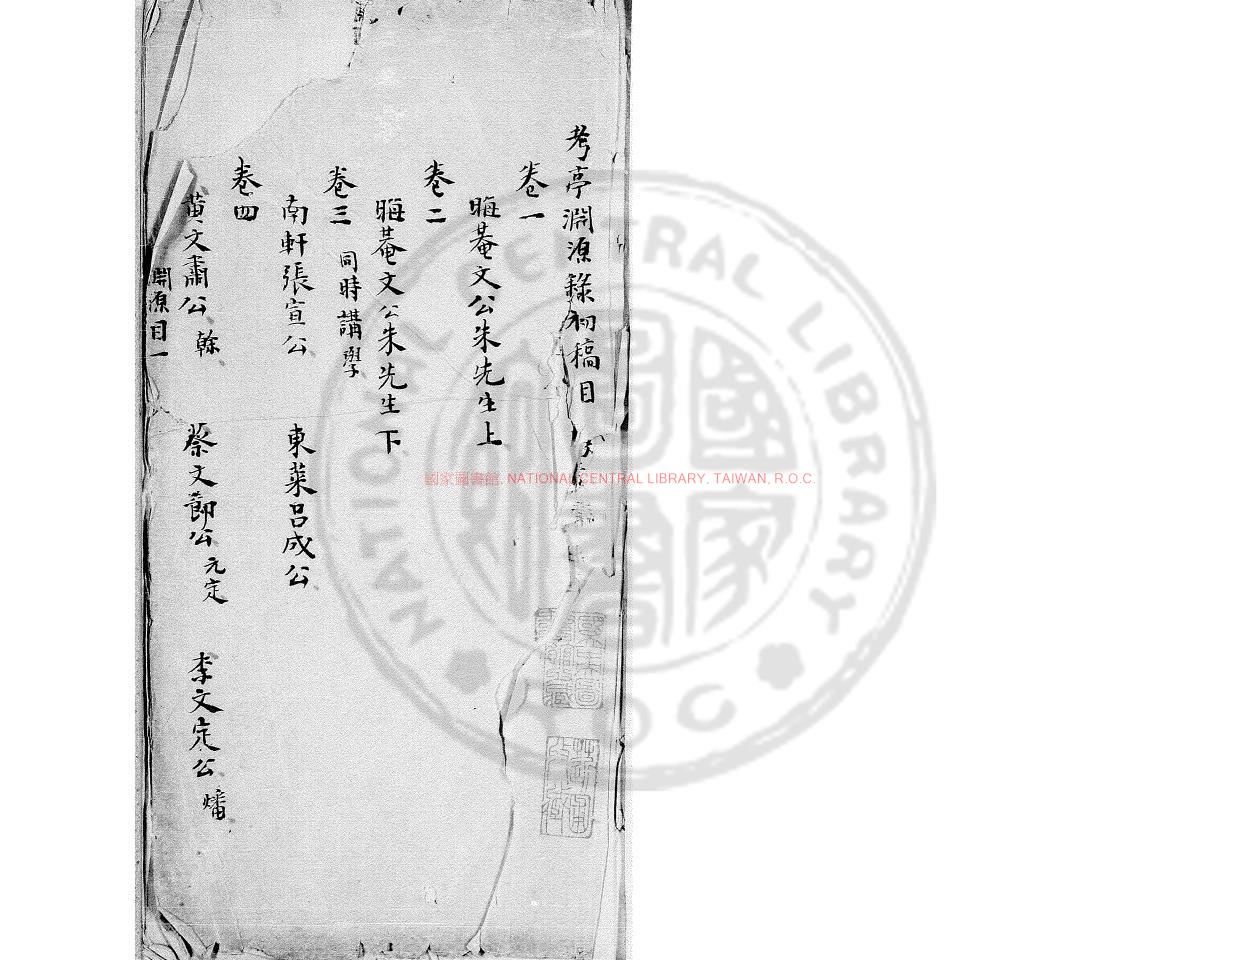 考亭淵源錄初稿目
卷一
晦菴文公朱先生上
卷二
晦菴文公朱先生下
卷三 同時講學
南軒張宣公 東萊呂成公
卷四
黃文肅公 榦 蔡文節公 元定 李文定公 燔
淵源目一
國家圖書館, NATIONAL CENTRAL LIBRARY, TAIWAN, R.O.C.
NATIONAL CENTRAL LIBRARY
ROC